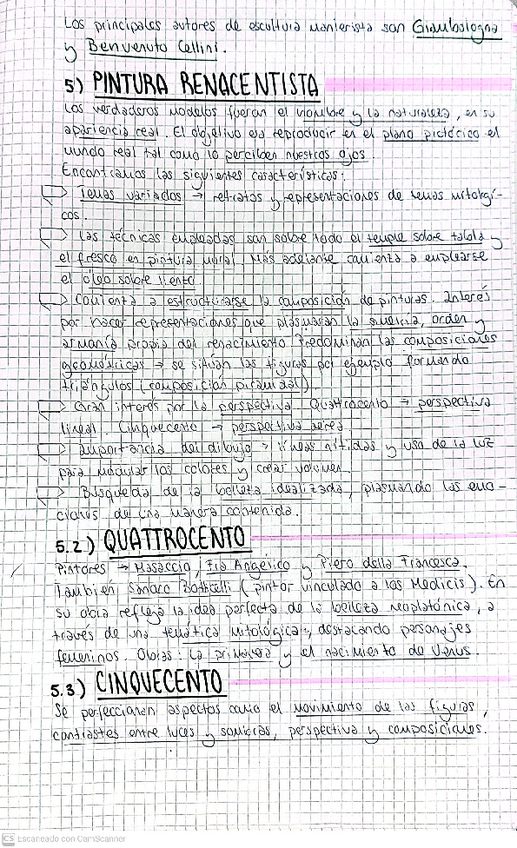 Los principales autores de escultura manierista son Giambologna
y Benvenuto Cellini.
5) PINTURA RENACENTISTA
Los verdaderos modelos fueron el hombre y la naturaleza, en su
apariencia real. El objetivo era reproducir en el plano pictórico el
mundo real tal como lo perciben nuestros ojos.
Encontramos las siguientes características:
Temas variados → retratos y representaciones de temas mitológi-
cos.
Las técnicas empleadas son sobre todo el temple sobre tabla y
el fresco en pintura mural. Más adelante comienza a emplearse
el óleo sobre lienzo.
Comienza a estructurarse la composición de pinturas. Interés
por hacer representaciones que plasmaran la simetría, orden y
armonía propia del renacimiento. Predominan las composiciones
geométricas → se sitúan las figuras por ejemplo formando
triángulos (composición piramidal).
Gran interés por la perspectiva. Quattrocento → perspectiva
lineal. Cinquecento → perspectiva aérea.
Importancia del dibujo → líneas nítidas y uso de la luz
para modular los colores y crear volumen.
Búsqueda de la belleza idealizada, plasmando las emo-
ciones de una manera contenida.
5.2) QUATTROCENTO
Pintores → Masaccio, Fra Angélico y Piero della Francesca.
También Sandro Botticelli (pintor vinculado a los Medicis). En
su obra refleja la idea perfecta de la belleza neoplatónica, a
través de una temática mitológica, destacando personajes
femeninos. Obras: La primavera y el nacimiento de Venus.
5.3) CINQUECENTO
Se perfeccionan aspectos como el movimiento de las figuras,
contrastes entre luces y sombras, perspectiva y composiciones.
CS Escaneado con CamScanner